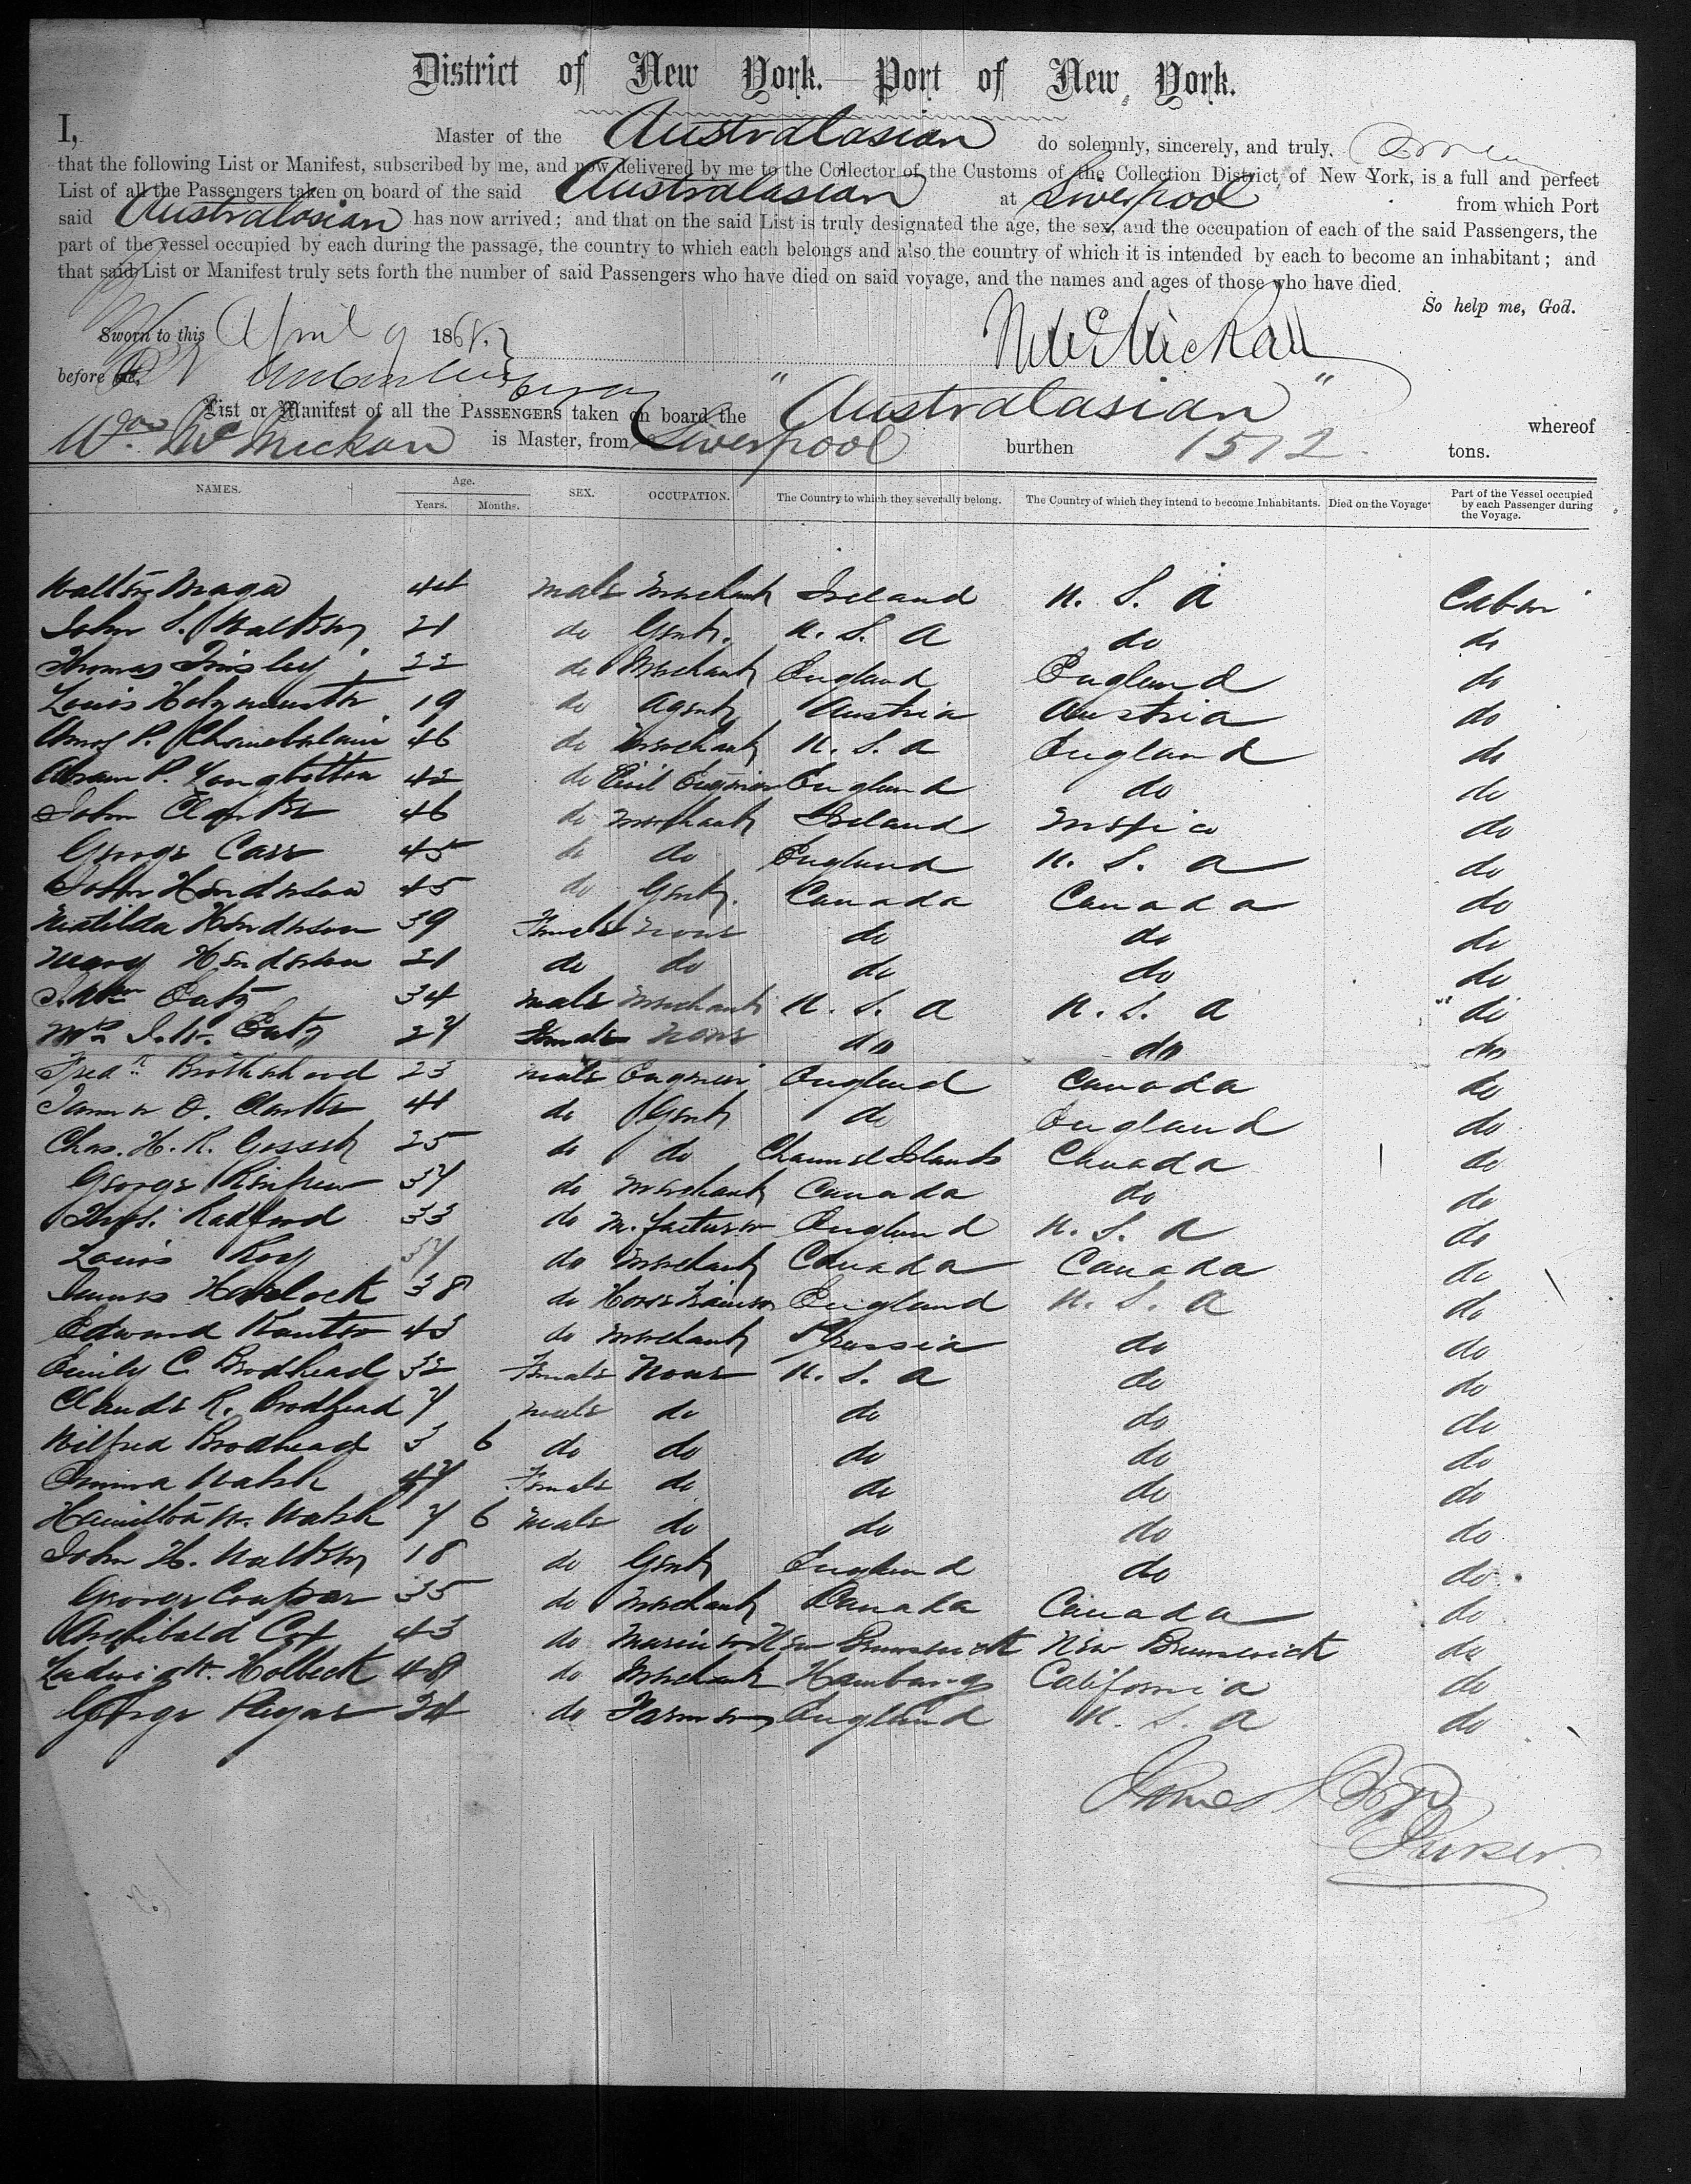 District of New York. — Port of New York.
I, Master of the Australasian do solemnly, sincerely, and truly,
that the following List or Manifest, subscribed by me, and now delivered by me to the Collector of the Customs of the Collection District of New York, is a full and perfect
List of all the Passengers taken on board of the said Australasian at Liverpool from which Port
said Australasian has now arrived; and that on the said List is truly designated the age, the sex, and the occupation of each of the said Passengers, the
part of the vessel occupied by each during the passage, the country to which each belongs and also the country of which it is intended by each to become an inhabitant; and
that said List or Manifest truly sets forth the number of said Passengers who have died on said voyage, and the names and ages of those who have died.
So help me, God.
Sworn to this April 9 1868.
before
List or Manifest of all the PASSENGERS taken on board the "Australasian" whereof
Wm. McMickan is Master, from Liverpool burthen 1512 tons.
NAMES. Age. Years. Months. SEX. OCCUPATION. The Country to which they severally belong. The Country of which they intend to become Inhabitants. Died on the Voyage Part of the Vessel occupied by each Passenger during the Voyage.
44 male Merchant Ireland U. S. A Cabin
John S. 21 do Gent. U. S. A do do
Thomas Tinsley 22 do Merchant England England do
Louis 19 do Agent Austria Austria do
Amos P. Chamberlain 46 do Merchant U. S. A England do
Abram P. Longbottom 42 do Civil Engineer England do do
John 46 do Merchant Ireland Mexico do
George Carr 45 do do England U. S. A do
John Henderson 45 do Gent. Canada Canada do
Matilda Henderson 39 Female None do do do
Mary Henderson 21 do do do do do
34 male Merchant U. S. A U. S. A do
Mrs 27 Female None do do do
Fredk Brotherhood 23 male Engineer England Canada do
James O. do Gent do England do
Chas. H. R. 25 do do Channel Islands Canada do
George Renfrew 37 do Merchant Canada do do
Thos. Radford 33 do M. facturer England U. S. A do
Louis Roy 57 do Merchant Canada Canada do
James Havelock 38 do Horse Trainer England U. S. A do
Edward Kanter 43 do Merchant Prussia do do
Emily C. Brodhead 32 Female None U. S. A do do
Claude R. Brodhead 7 male do do do do
Wilfred Brodhead 3 6 do do do do do
Emma Walsh 47 Female do do do do
Hamilton W. Walsh 7 6 Male do do do do
John H. 18 do Gent England do do
George Couper 35 do Merchant Canada Canada do
Archibald Cox 43 do Mariner New Brunswick New Brunswick do
Ludwig W. Holbeck 48 do Merchant Hamburg California do
George 34 do Farmer England U. S. A do
James
Purser